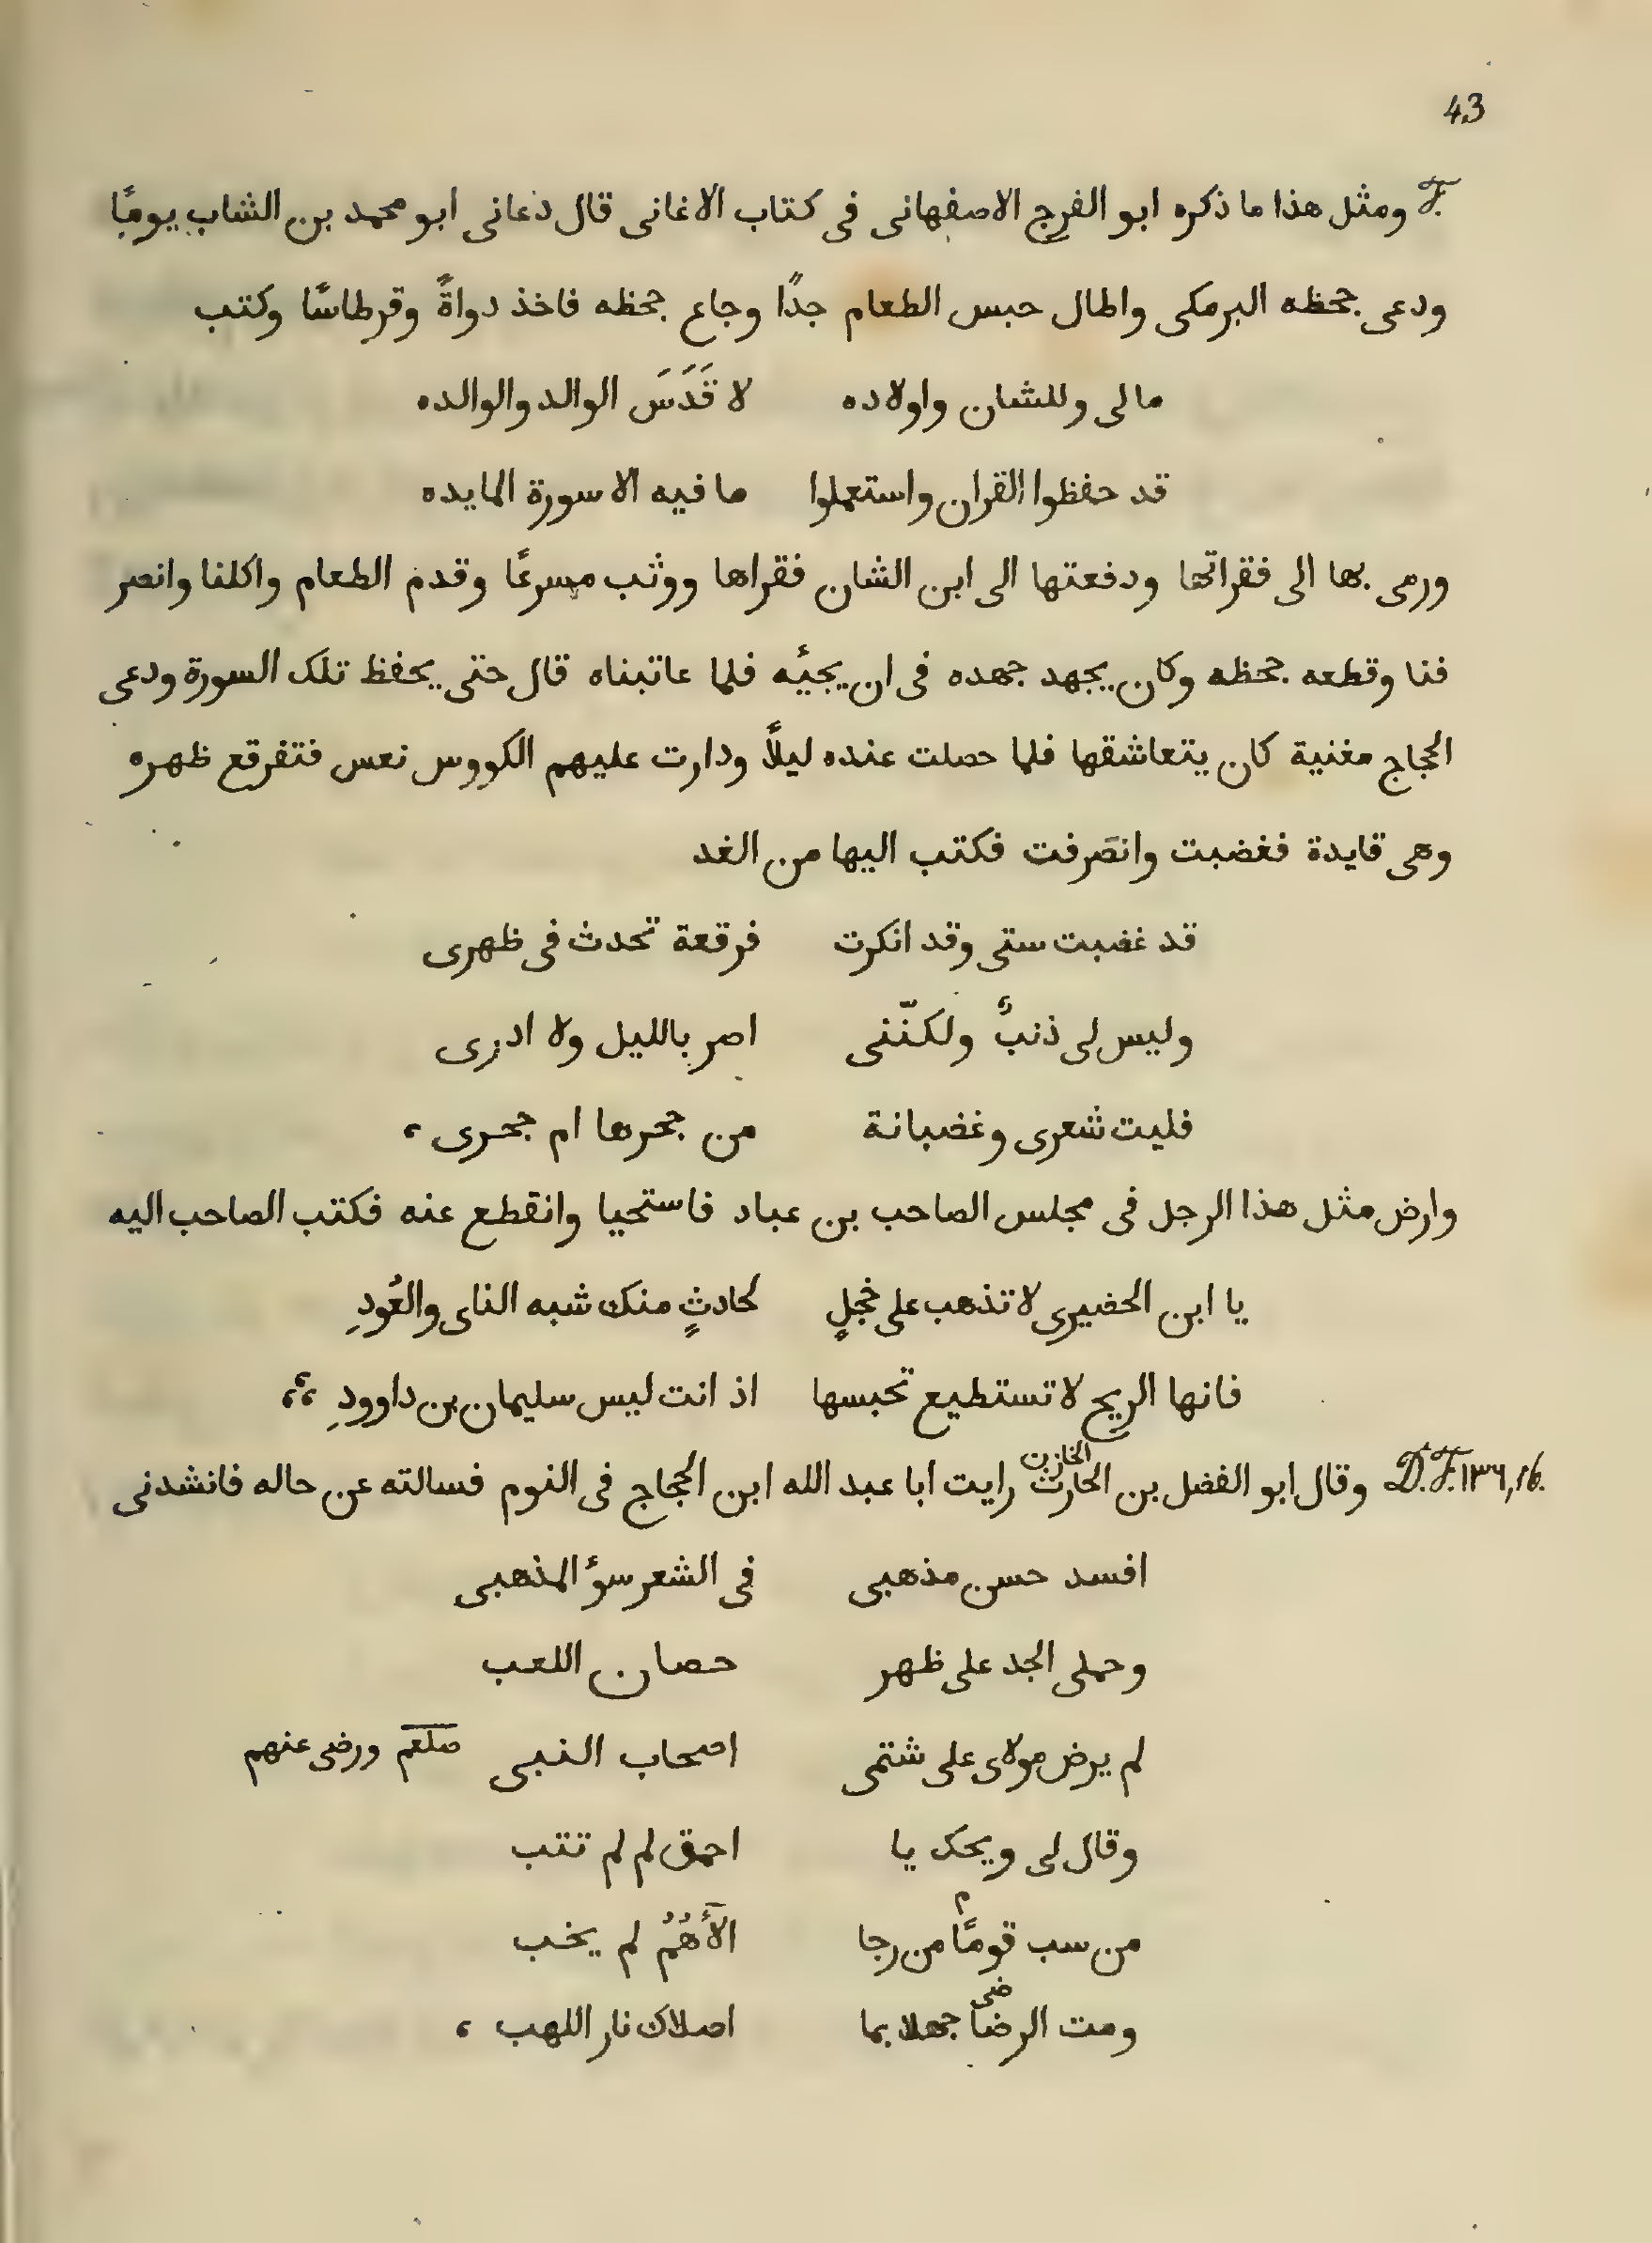 43
F. ومثل هذا ما ذكره ابو الفرج الاصفهانى فى كتاب الاغانى قال دعانى ابو محمد بن الشاب يومًا
ودعى جحظه البرمكى واطال حبس الطعام جدًا وجاع جحظه فاخذ دواةً وقرطاسًا وكتب
مالى وللشان واولاده لا قَدَسَ الوالد والوالده
قد حفظوا القران واستعملوا ما فيه الا سورة المايده
ورمى بها الى فقراتها ودفعتها الى ابن الشان فقراها ووثب مسرعًا وقدم الطعام واكلنا وانصر
فنا وقطعه جحظه وكان يجهد جهده فى ان يجئه فلما عاتبناه قال حتى يحفظ تلك السورة ودعى
الحجاج مغنية كان يتعاشقها فلما حصلت عنده ليلًا ودارت عليهم الكووس نعس فتفرقع ظهره
وهى قايدة فغضبت وانصَرفت فكتب اليها من الغد
قد غضبت ستى وقد انكرت فرقعة تحدث فى ظهرى
وليس لى ذنبٌ ولكنّنى اصر بالليل ولا ادرى
فليت شعرى وغضبانة من جحرها ام جحرى ،
وارض مثل هذا الرجل فى مجلس الصاحب بن عباد فاستحيا وانقطع عنه فكتب الصاحب اليه
يا ابن الحضيرى لا تذهب على خجلٍ لحادثٍ منك شبه الناى والعُودِ
فانها الريح لا تستطيع تحبسها اذ انت ليس سليمان بن داوودِ ،،
الخازن
D. F. ١٣٦, 16. وقال ابو الفضل بن الحارث رايت ابا عبد الله ابن الحجاج فى النوم فسالته عن حاله فانشدنى
افسد حسن مذهبى فى الشعر سؤ المذهبى
وحملى الجد على ظهر حصان اللعب
لم يرض مولاى على شتمى اصحاب النبى صلعم ورضى عنهم
وقال لى ويحك يا احمق لم لم تتب
م
من سب قومًا من رجا الأهُمُ لم يخب
ضى
ومت الرضا جهلا بما اصلاك نار اللهب ،